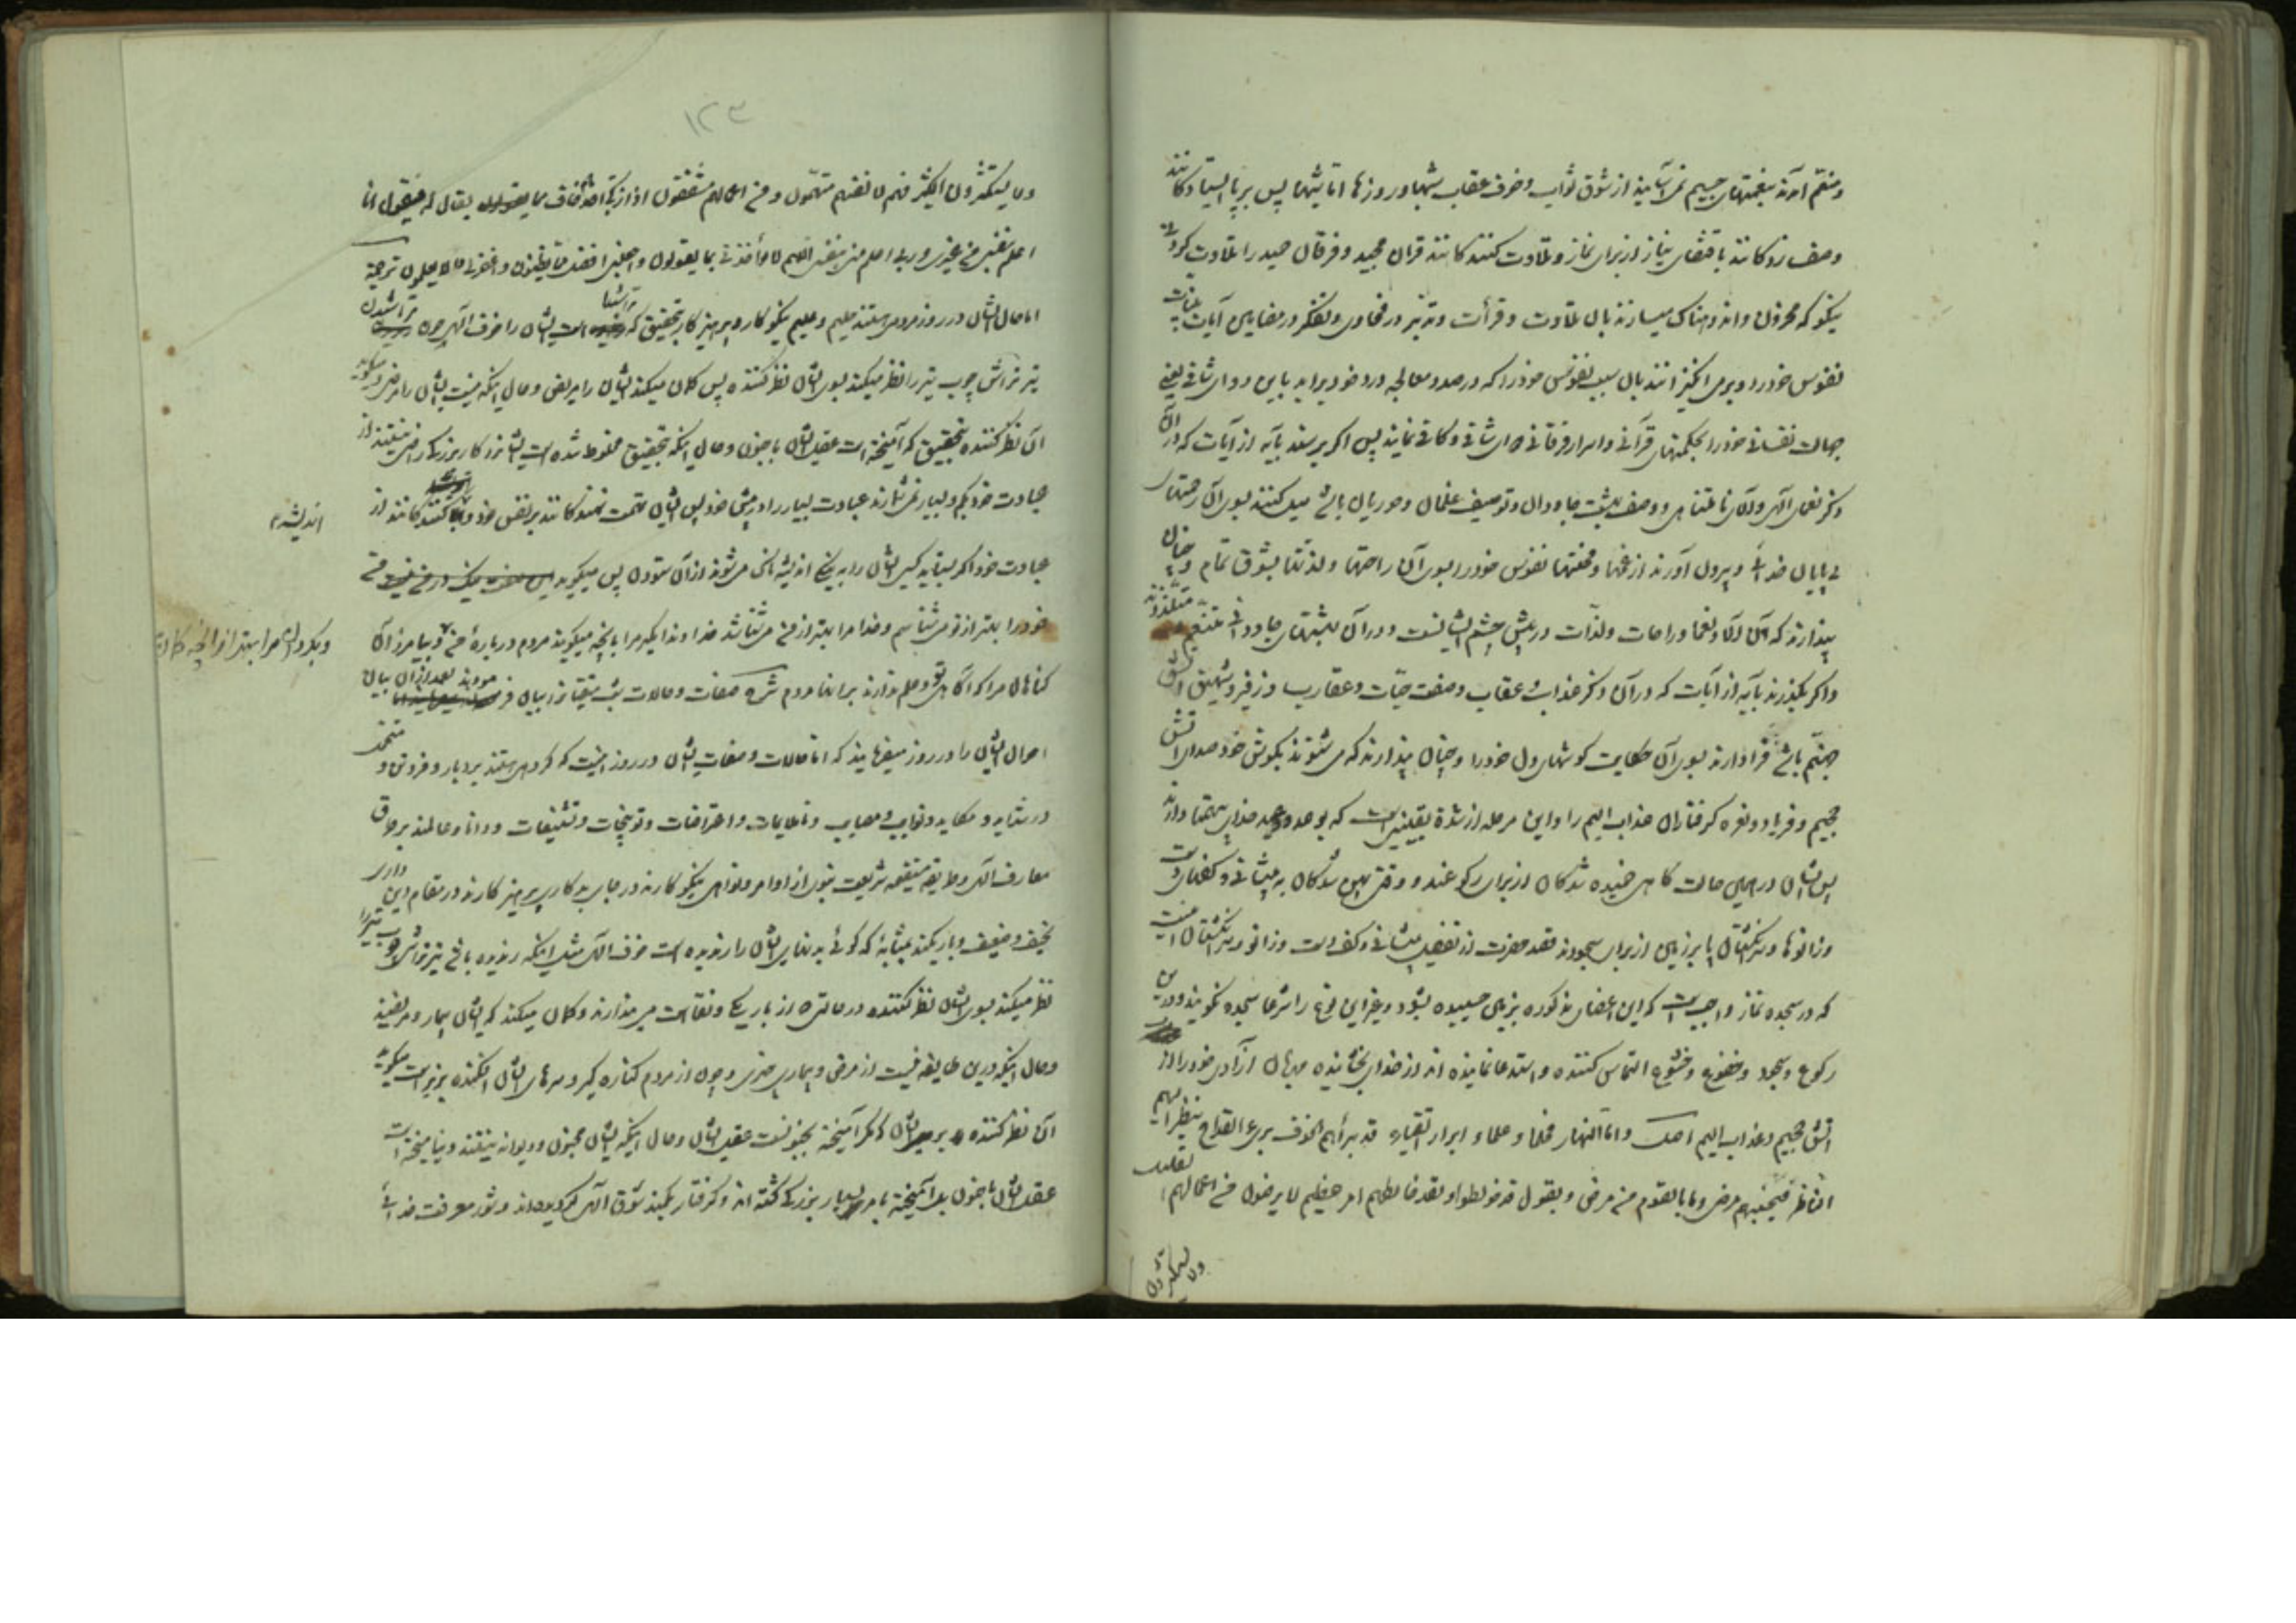 و متنعم آمدند بنعمتهای جسیم نمی آسایند از شوق ثواب و خوف عقاب شبها و روزها اما شبها پس بر پا ایستادگانند
وصف زدگانند باقتضای نیاز از برای نماز و تلاوت کنندگانند قرآن مجید و فرقان حمید را تلاوت کردنی
نیکو که محزون و اندوهناک میسازند بآن تلاوت و قرأت و تدبر در فحاوی و تفکر در مضامین آیات بینات
نفوس خود را و برمی انگیزانند بآن سبب نفوس خود را که در صدد معالجه درد خود برآید باین دوای شافی یعنی
جهالت نفسانی خود را بحکمتهای قرآنی و اسرار فرقانی دوای شافی و کافی نمایند پس اگر برسند بآیه از آیات که در آن
ذکر نعمای الهی و آلای نامتناهی و وصف بهشت جاودان و توصیف غلمان و حوریان باشد میل کنند بسوی آن رحمتهای
بی پایان خدائی و بیرون آورند از غمها و محنتها نفوس خود را بسوی آن راحتها و لذتها بشوق تمام و چنان
پندارند که آن آلاء و نعما و راحات و لذّات در پیش چشم ایشانست و در آن بهشتهای جاودانی متنعم متلذذند
و اگر بگذرند بآیه از آیات که در آن ذکر عذاب و عقاب و صفت حیّات و عقارب و زفیر و شهیق آتش
جهنّم باشد فرادارند بسوی آن حکایت گوشهای دل خود را و چنان پندارند که می شنوند بگوش خود صدای آتش
جحیم و فریاد و نعره گرفتاران عذاب الیم را و این مرحله از شدة یقینی است که بوعد و وعید خدای یکتا دارند
پس ایشان در همین حالت گاهی خمیده شدگان از برای رکوعند و وقتی پهن شدگان به پیشانی و کفهای دست
و زانوها و سر انگشتان پا بر زمین از برای سجودند قصد حضرت از تفصیل پیشانی و کف دست و زانو و سر انگشتان اینست
که در سجده نماز واجب است که این اعضای مذکوره بزمین چسبیده بشود و غیر این نوع را شرعا سجده نگویند و درین
رکوع و سجود و خضوع و خشوع التماس کننده و استدعا نماینده اند از خدای بخشاینده مهربان آزادی خود را از
آتش جحیم و عذاب الیم اصل و اما النهار فحلماء علماء ابرار اتقیاء قد برأهم الخوف بری القداح ینظر الیهم
الناظر فیحسبهم مرضی و ما بالقوم من مرض و یقول قد خولطوا و لقد خالطهم امر عظیم لا یرضون من اعمالهم القلیل
و لا یستکثرون
۱۲۳
و لا یستکثرون الکثیر فهم لانفسهم متهمون و من اعمالهم مشفقون اذا زکی احدهم خاف مما یقال له فیقول انا
اعلم بنفسی من غیری و ربی اعلم منی بنفسی اللهم لا تؤاخذنی بما یقولون و اجعلنی افضل مما یظنون و اغفر لی ما لا یعلمون ترجمه
اما حال ایشان در روز مردمی هستند حلیم و علیم نیکوکار و پرهیزکار بتحقیق که تراشیده است ایشان را خوف الهی چون تراشیدن
تیرتراش چوب تیر را نظر میکند بسوی ایشان نظرکننده پس گمان میکند ایشان را مریض و حال اینکه نیست ایشان را مرض و میگوید
آن نظرکننده بتحقیق که آمیخته است عقل ایشان با جنون و حال اینکه بتحقیق مخلوط شده است ایشانرا کار بزرگ راضی نیستند از
عبادت خود بکم و بسیار نمی شمارند عبادت بسیار را در پیش خود پس ایشان تهمت نهندگانند بر نفس خود و کنندگانند از
اندیشه
عبادت خود اگر بستاید کسی ایشان را به نیکی اندیشه ناک می شوند از آن ستودن پس میگوید من
خود را بهتر از تو می شناسم و خدا مرا بهتر از من می شناسد خداوندا مگیر مرا بآنچه میگویند مردم درباره من و بیامرز آن
و بگردان مرا بهتر از آنچه گمان
گناهان مرا که آگاهی و علم ندارند بر آنها مردم شرح صفات و حالات شب متقیان را بیان فرمودند بعد از آن بیان
احوال ایشان را در روز میفرمایند که اما حالات و صفات ایشان در روز اینست که گروهی هستند بردبار و فروتن و متحمل
در شداید و مکاید و نوایب و مصایب و ناملایمات و اعتراضات و توبیخات و تشنیعات و دانا و عالمند بدقایق
معارف الهی و طریقه مستقیمه شریعت نبوی از اوامر و نواهی نیکوکارند در جای بدکاری پرهیزکارند در مقام دین داری
نحیف و ضعیف و باریکند بمثابه که گوئی بدنهای ایشان را رندیده است خوف الهی مثل اینکه رندیده باشد تیرتراش چوب تیر را
نظر میکند بسوی ایشان نظرکننده در حالتی از باریکی و نقاهت می پندارند و گمان میکند که ایشان بیمار و مریضند
و حال اینکه درین طایفه نیست از مرض و بیماری چیزی و چون از مردم کناره گیر و سرهای ایشان افکنده بزیر است میگوید
آن نظرکننده بر ایشان که مگر آمیخته بجنونست عقل ایشان و حال اینکه ایشان مجنون و دیوانه نیستند و نیامیخته است
عقل ایشان با جنون بل آمیخته بامر بسیار بزرگ گشته اند و گرفتار کمند شوق الهی گردیده اند و شور معرفت خدائی